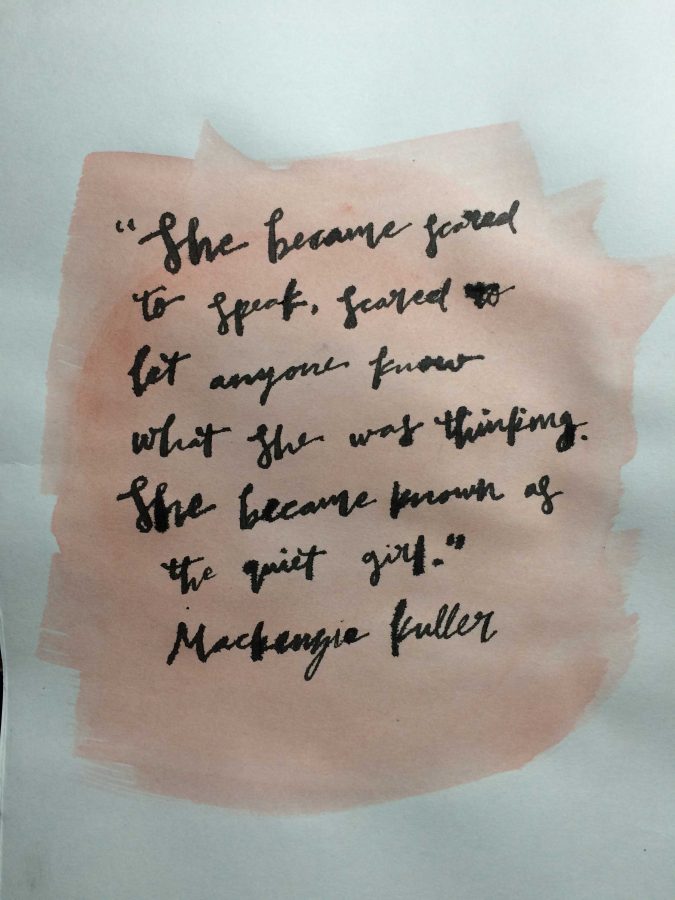 "She became scared
to speak, scared to
let anyone know
what she was thinking.
She became known as
the quiet girl."
Mackenzie Kuller